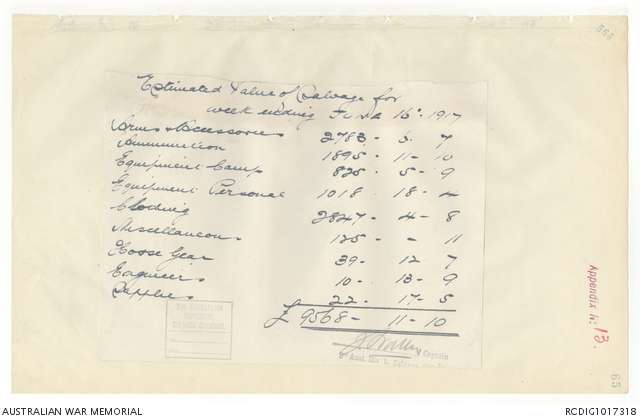 Estimated Value of Salvage for
week ending June 16th 1917
Arms & Accessories 2783 - 5 - 7
Ammunition 1895 - 11 - 10
Equipment Camp 825 - 5 - 9
Equipment Personal 1018 18 - 4
Clothing 2847 - 4 - 8
Miscellaneous 125 - - 11
Horse Gear 39 - 12 7
Engineers 10 - 13 - 9
Supplies 22 - 17 - 5
£ 9568 - 11 - 10
Captain
Appendix No 13.
65
AUSTRALIAN WAR MEMORIAL
RCDIG1017318